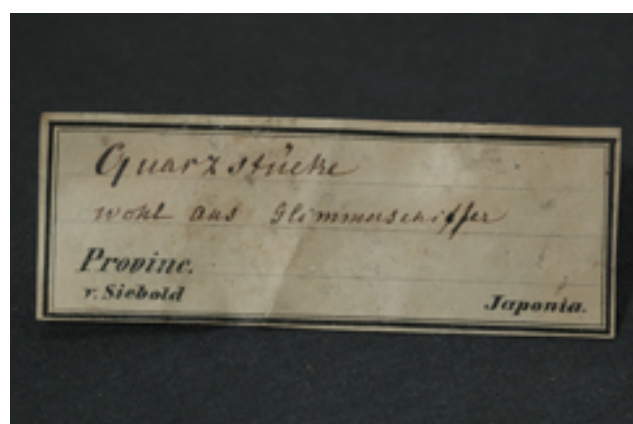 Quarzstücke
wohl aus Glimmerschiffer
Provinc.
v. Siebold Japonia.